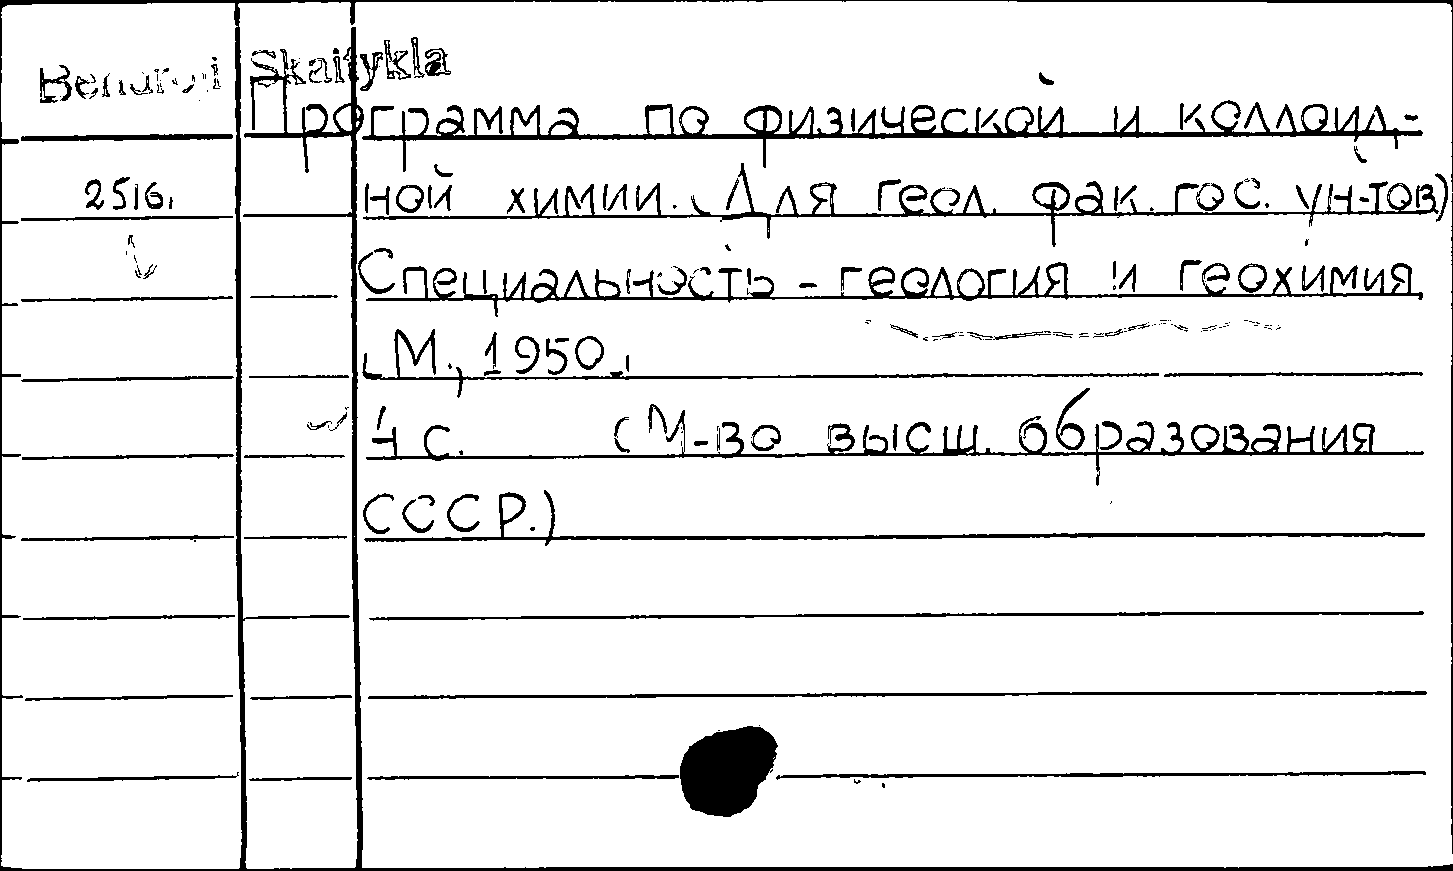 Bendroji Skaitykla
Программа по физической и коллоид-
2516.
ной химии. (Для геол. фак. гос. ун-тов)
Специальность - геология и геохимия
[М., 1950.]
4 с. (М-во высш. образования
СССР.)